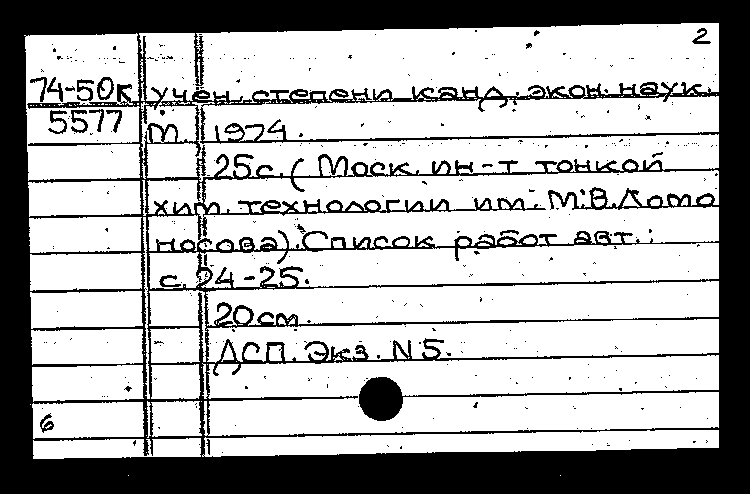 2
74-50к учен. степени канд. экон. наук.
5577 М. 1974.
25с. (Моск. ин-т тонкой
хим. технологии им. М.В.Ломо
носова). Список работ авт.:
с. 24-25.
20см.
ДСП. Экз. N5.
6